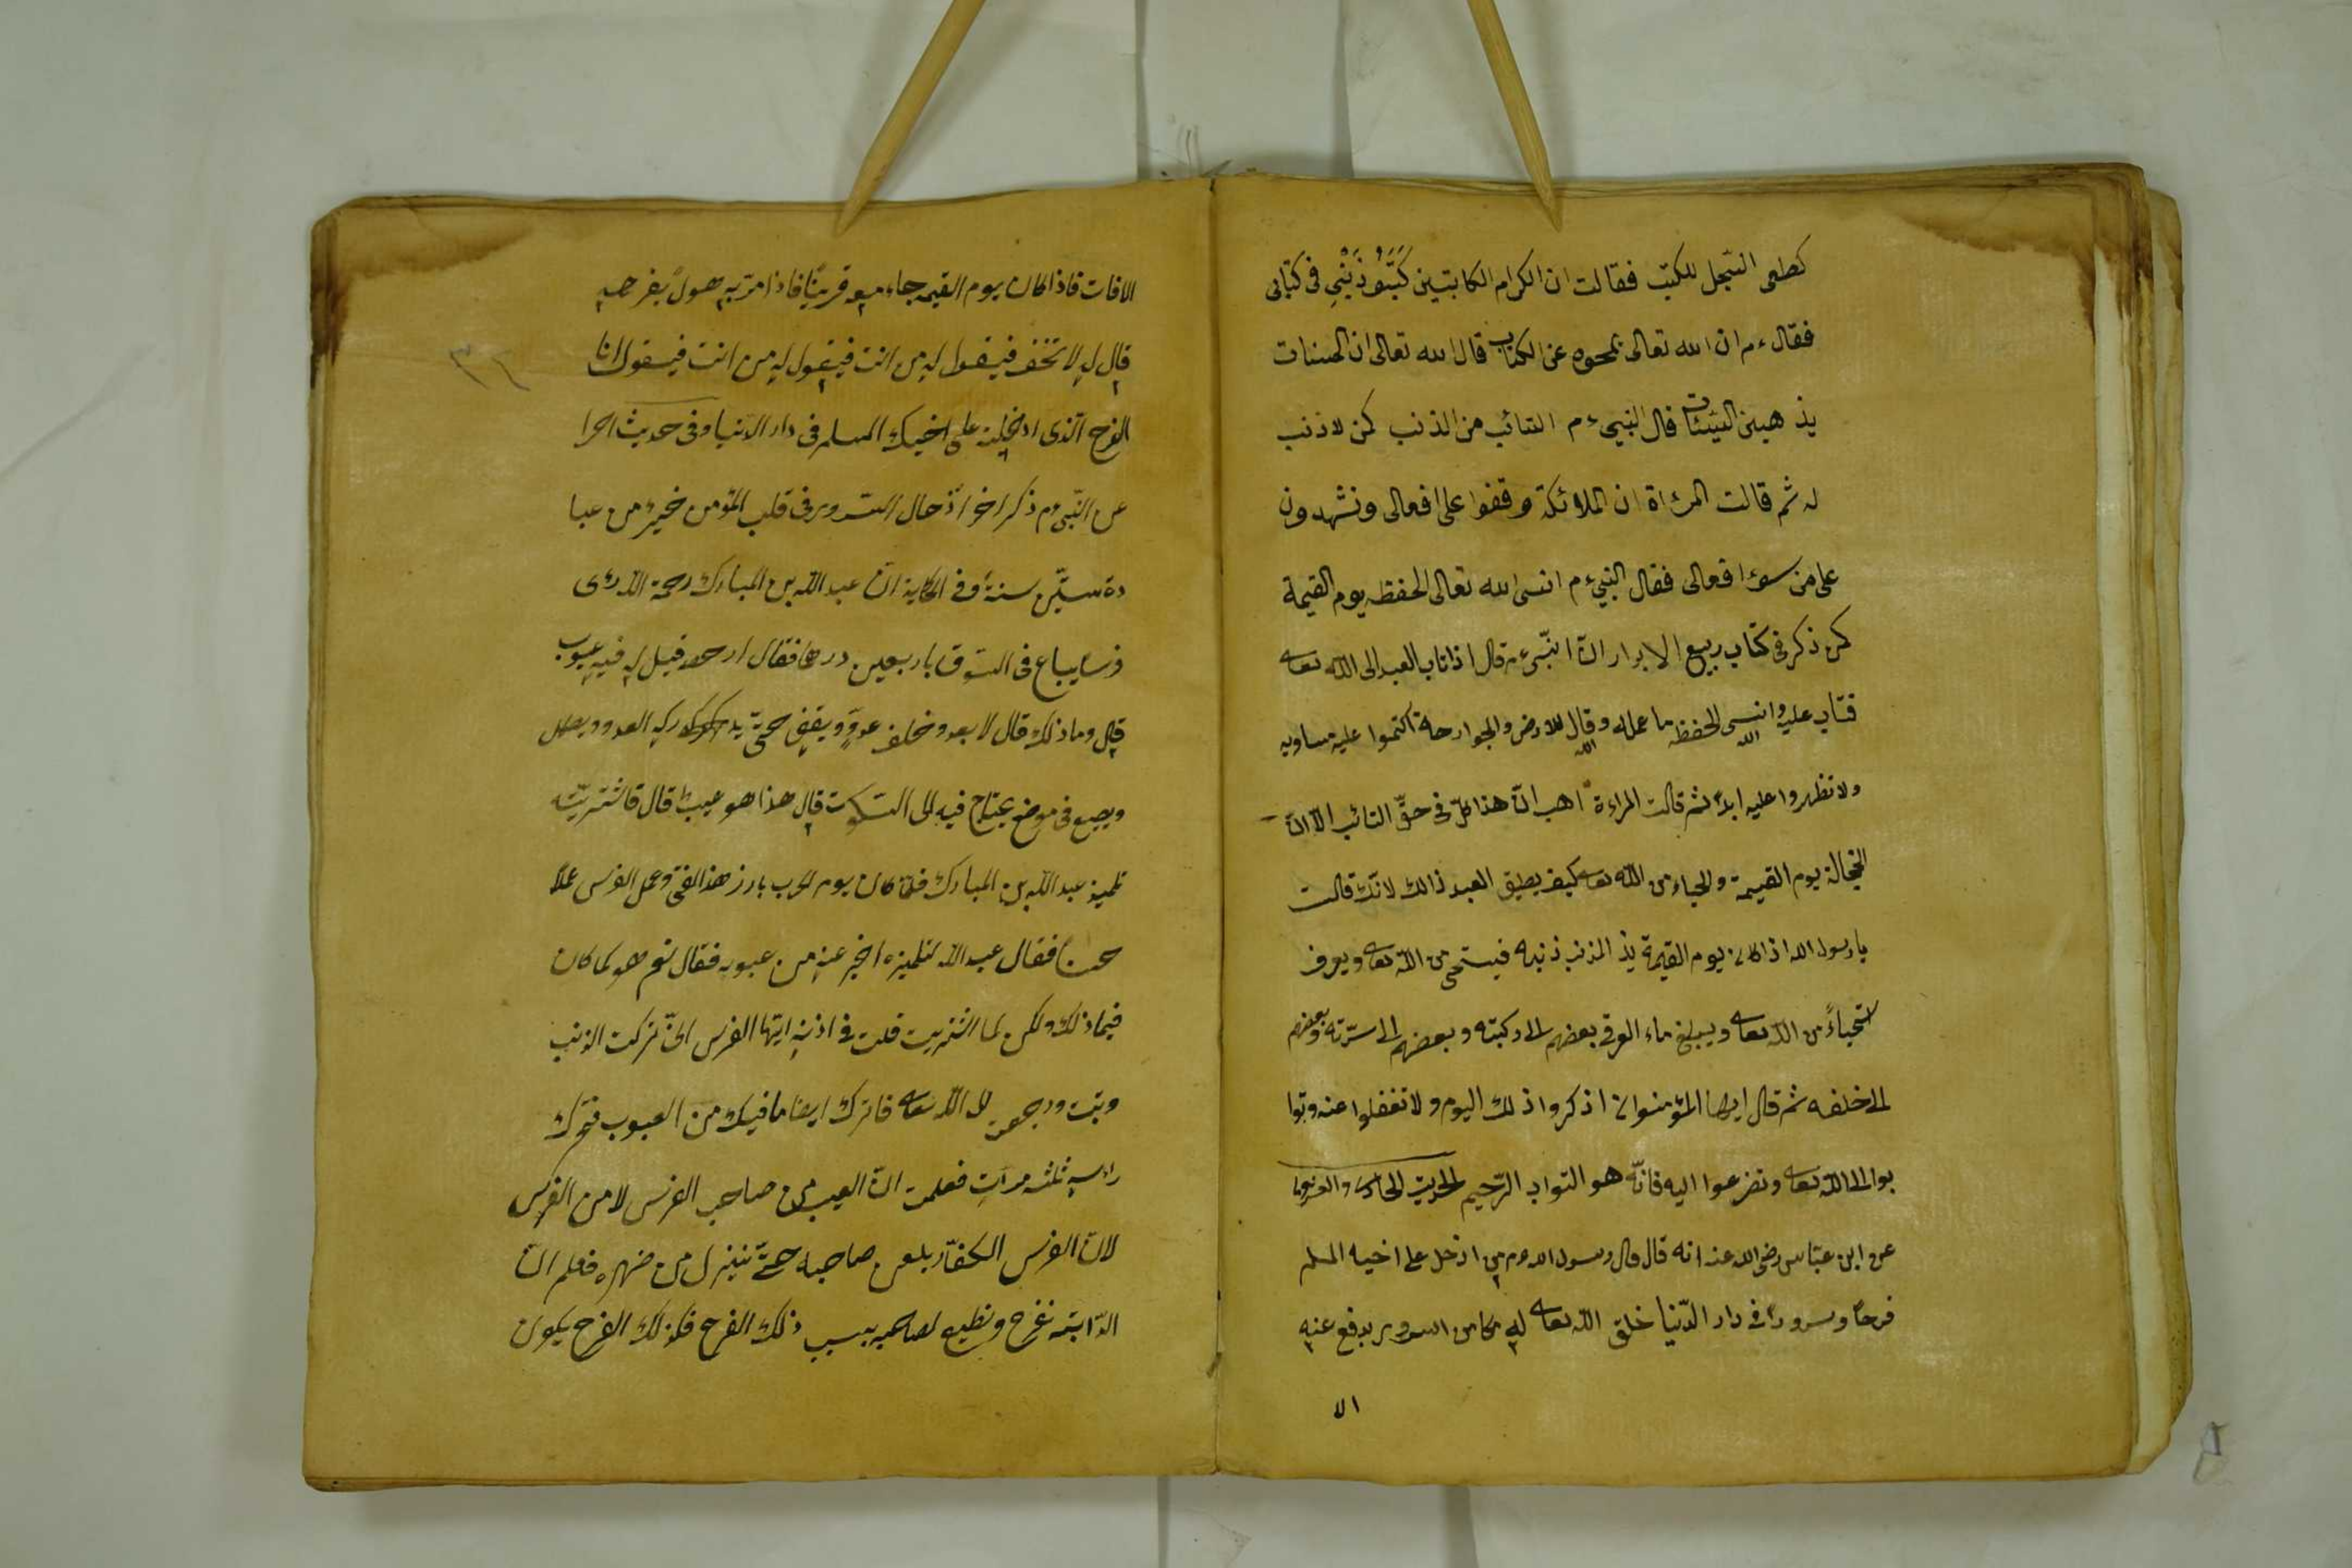 كطى السّجل للكتب فقالت ان الكرام الكاتبين كَتَبُوُ ذَنْبِي فى كتابى
فقال ءم ان الله تعالى يمحوه عن الكتاب قال الله تعالى ان الحسنات
يذهبن السيئات قال النبيءم التائب من الذنب كمن لا ذنب
له ثم قالت المرءاة ان الملائكة وقفوا على افعالى ونشهدون
على من سوءافعالى فقال النبيءم انسى الله تعالى الحفظه يوم القيمة
كمن ذكر فى كتاب ربيع الابرار انّ النّبىءم قال اذا تاب العبد الى الله تعالى
فتاب عليه وانسى الله الحفظه ما عمله وقال الله للارض والجوارحه اكتموا عليه مساويه
ولا تظهروا عليه ابدًا ثم قالت المراءة اهب انّ هذا كلّ فى حقّ التائب الّا انّ
الخجالة يوم القيمة والحياء من الله تعالى كيف يطيق العبد ذالك لانّك قالت
يا رسول الله اذا كان يوم القيمة يذ المذنب ذنبه فيستحى من الله تعالى ويعرف
استحياءً من الله تعالى ويبلغ ماء العرق بعضهم الى ركبته وبعضهم الى سرّته وبعضهم
الى خلفه ثم قال ايها المؤمنوان اذكروا ذلك اليوم ولا تغفلوا عنه وتوا
بوا الى الله تعالى وتضرعوا اليه فانّه هو التواب الرّحيم الحديث الحادى والعشرون
عن ابن عبّاس رضى الله عنه انه قال قال رسول الله ءم من ادخل على اخيه المسلم
فرحًا وسرورًا فى دار الدّنيا خلق الله تعالى له ملكا من السرور يدفع عنه
الا
الافات فاذا كان يوم القيمه جاء معه قرينًا فاذا مرّ به هولٌ يفرحه
قال له لا تخف فيقول له من انت فيقول له من انت فيقول انا
الفرح الّذى ادخلته على اخيك المسلم فى دار الدّنيا وفى حديث اخرا
عن النّبىءم ذكر اخر ادخال السّرور فى قلب المؤمن خيرٌ من عبا
دة ستّين سنة وفى الحكاية انّ عبد الله بن المبارك رحمة الله رئى
فرسًا يباع فى السّوق باربعين درهما فقال ارحصه فيل له فيه عيوب
قال وما ذلك قال لا يعدو خلف عدوّ ويقف حتى يدركه العدو ويصهل
ويصيح فى موضع يحتاج فيه الى السّكوت قال هذا هو عيب قال فاشتريّته
تلميذ عبد الله بن المبارك فلمّا كان يوم الحرب بارز هذا الفتى وعمل الفرس عملًا
حسنًا فقال عبد الله لتلميزه اخبر عنه من عبوبه فقال نعم هو كما كان
فيما ذلك ولكن لما اشتريت قلت فى اذنه ايّها الفرس انّى تركت الذنب
وتبت ورجعت الى الله تعالى فاترك ايضا ما فيك من العيوب فتحرك
راسه ثلثه مرات فعلمت انّ العيب من صاحب الفرس لا من الفرس
لانّ الفرس الكفّار يلعن صاحبه حتّى ينزل من ضهره فعلم انّ
الدّابّة تفرح وتطيع لصاحبه بسبب ذلك الفرح فكذلك الفرح يكون